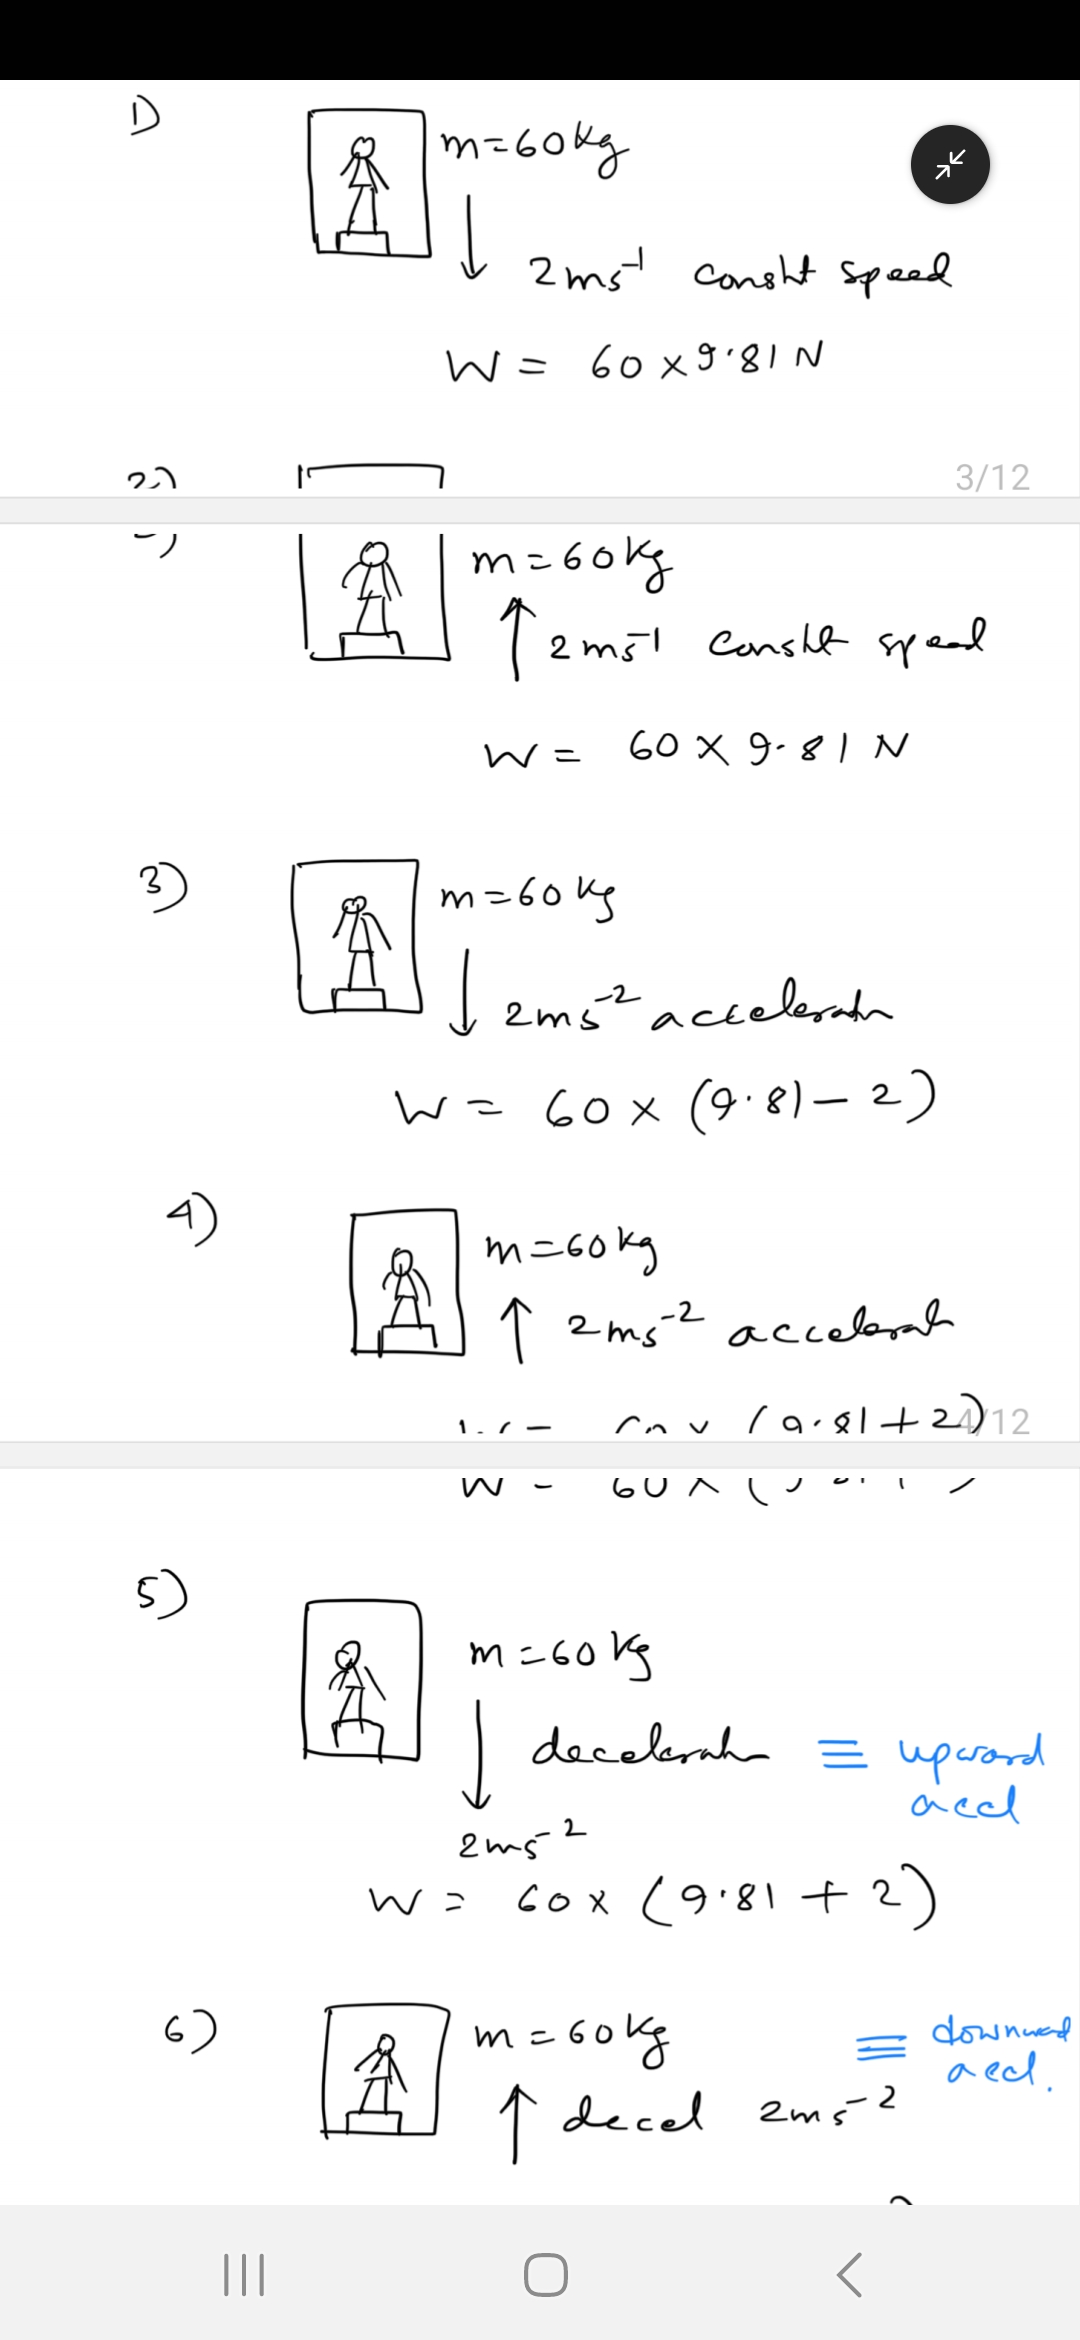 1)
m=60kg
↓ 2ms⁻¹ constt speed
W = 60 x 9.81 N
2)
3/12
m=60kg
↑ 2ms⁻¹ constt speed
W = 60 x 9.81 N
3)
m=60kg
↓ 2ms⁻² acceleratn
W = 60 x (9.81 - 2)
4)
m=60kg
↑ 2ms⁻² acceleratn
W = 60 x (9.81+2)
4/12
5)
m=60kg
↓ deceleratn ≡ upward
accl
2ms⁻²
W = 60x (9.81 + 2)
6)
m = 60kg ≡ downward
accl.
↑ decel 2ms⁻²